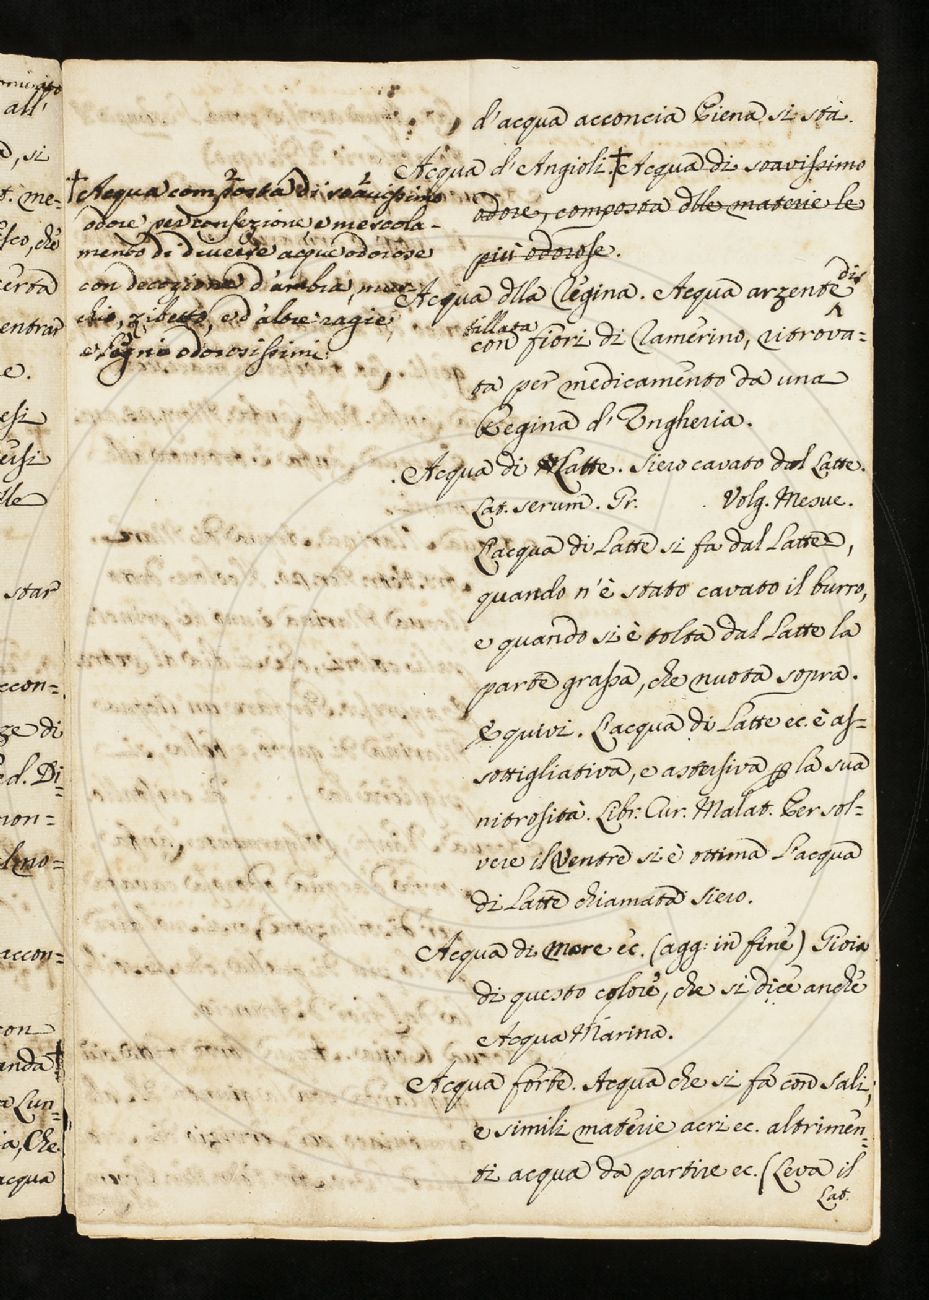 d'acqua acconcia Piena si sta.
Acqua d'Angioli. † Acqua di soavissimo
odore, composta dlle materie le
più odorose.
† Acqua composta di soavissimo
odore per confezione, e mescola-
mento di diverse acque odorose
con decozione d'ambra, mus-
chio, zibetto, e d'altre ragie,
e legni odorosissimi
Acqua dlla Regina. Acqua arzente dis
tillata
con fiori di Ramerino, ritrova=
ta per medicamento da una
Regina d'Ungheria.
Acqua di Latte. Siero cavato dal Latte.
Lat. serum. Gr. Volg. Mesue.
L'acqua di Latte si fa dal Latte,
quando n'è stato cavato il burro,
e quando si è tolta dal Latte la
parte grassa, che nuota sopra.
E quivi. L'acqua di Latte ec. è as=
sottigliativa, e astersiva p la sua
nitrosità. Libr. Cur. Malat. Per sol=
vere il Ventre si è ottima L'acqua
di Latte chiamata Siero.
Acqua di mare ec. (agg: in fine) Gioia
di questo colore, che si dice anche
Acqua Marina.
Acqua forte. Acqua che si fa con sali,
e simili materie acri ec. altrimen=
ti acqua da partire ec. (Leva il
Lat.
all'
, si
. me=
sco, chè
certa
entrar
e.
esi
star
ccon=
ge di
ed. Di=
non=
accon=
con
anda †
a Lun=
ia, Che
acqua